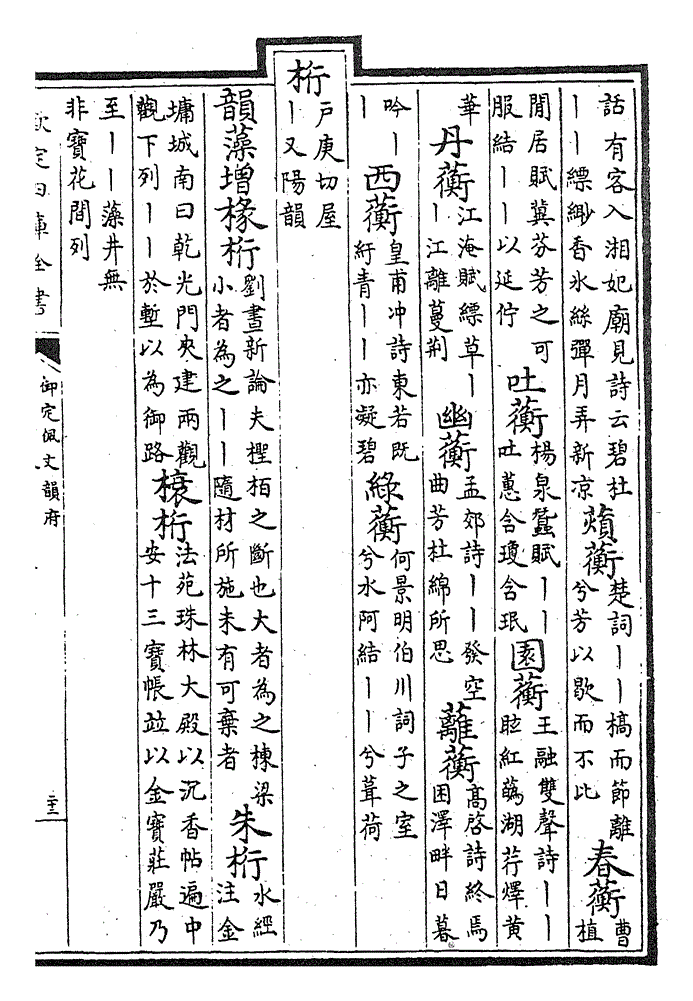 話有客入湘妃廟見詩云碧杜
丨丨縹緲香氷絲彈月弄新凉
薠蘅
楚詞丨丨槁而節離
兮芳以歇而不比
春蘅
曹
植
閒居賦冀芬芳之可
服結丨丨以延佇
吐蘅
楊泉蠶賦丨丨
吐蕙含瓊含珉
園蘅
王融雙聲詩丨丨
眩紅蘤湖荇燡黄
華
丹蘅
江淹賦縹草丨
丨江離蔓荆
幽蘅
孟郊詩丨丨發空
曲芳杜綿所思
蘺蘅
高啓詩終焉
困澤畔日暮
吟丨
丨
西蘅
皇甫冲詩東若既
紆青丨丨亦凝碧
綠蘅
何景明伯川詞子之室
兮水阿結丨丨兮葺荷
桁
戸庚切屋
丨又陽韻
韻藻增椽桁
劉晝新論夫檉栢之斷也大者為之棟梁
小者為之丨丨隨材所施未有可棄者
朱桁
水經
注金
墉城南曰乾光門夾建兩觀
觀下列丨丨於塹以為御路
榱桁
法苑珠林大殿以沉香帖遍中
安十三寶帳竝以金寶莊嚴乃
至丨丨藻井無
非寶花間列
欽定四庫全書
御定佩文韻府